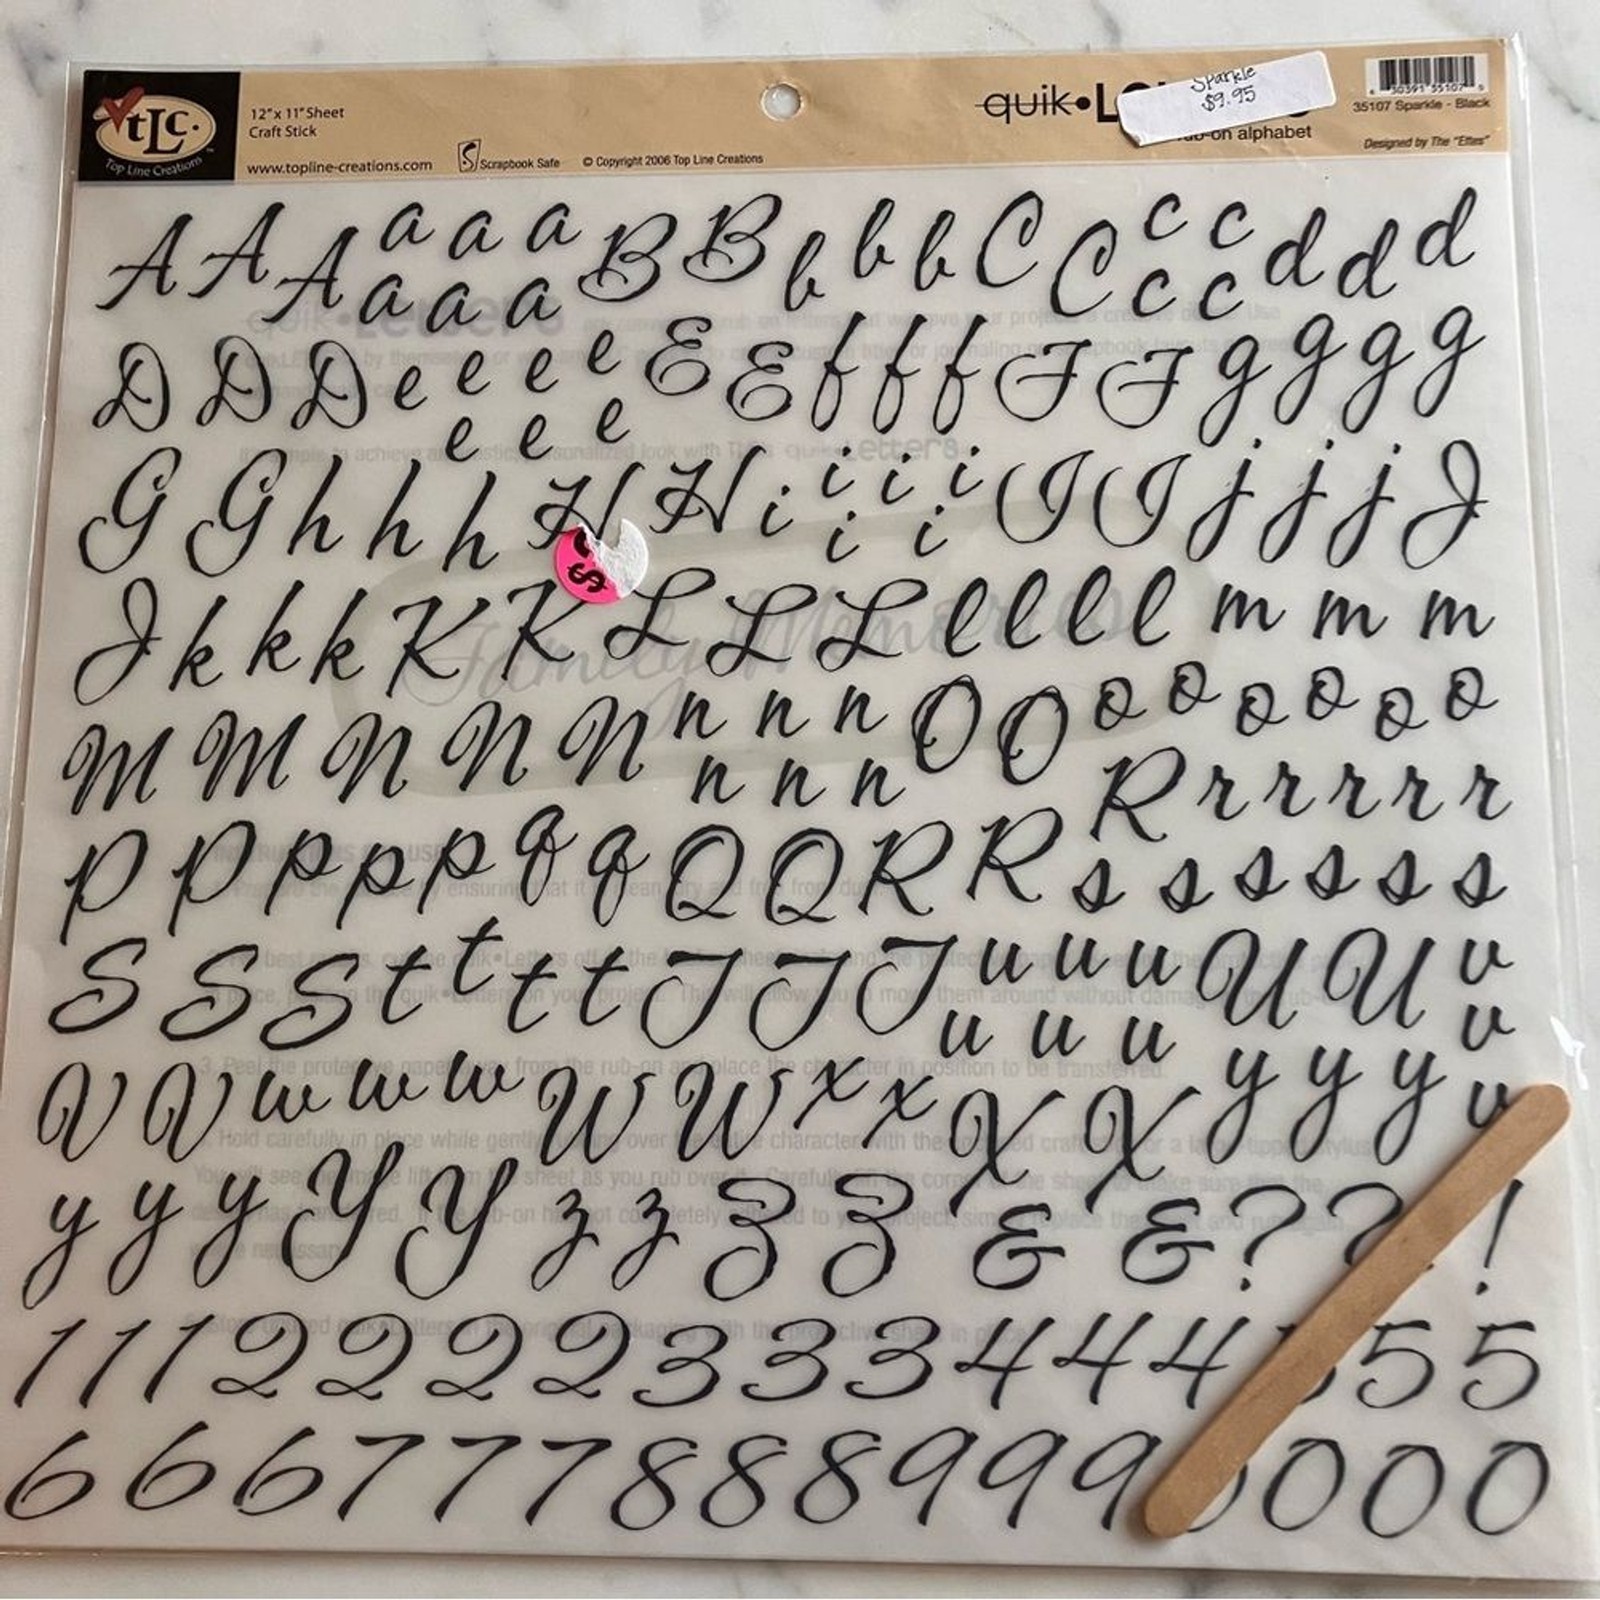 tLc.
Top Line Creations
12" x 11" Sheet
Craft Stick
www.topline-creations.com
Scrapbook Safe
© Copyright 2006 Top Line Creations
quik•
Sparkle
$9.95
alphabet
35107 Sparkle - Black
Designed by The "Ettes"
A A A a a a B B b b b C C c c d d d
a a a c c
D D D e e e e E E f f f F F g g g g
e e e
G G h h h H H i i i i I I j j j J
i i
$
J k k k K K L L L l l l l m m m
M M N N N n n n O O o o o o o o
n n n R r r r r r
P P p p p q q Q Q R R s s s s s s
S S S t t t t T T T u u u U U v
u u u v
V V w w w W W x x X X y y y v
y y y Y Y z z Z Z & & ? ? !
1 1 1 2 2 2 2 3 3 3 4 4 4 5 5
6 6 6 7 7 7 8 8 8 9 9 9 0 0 0